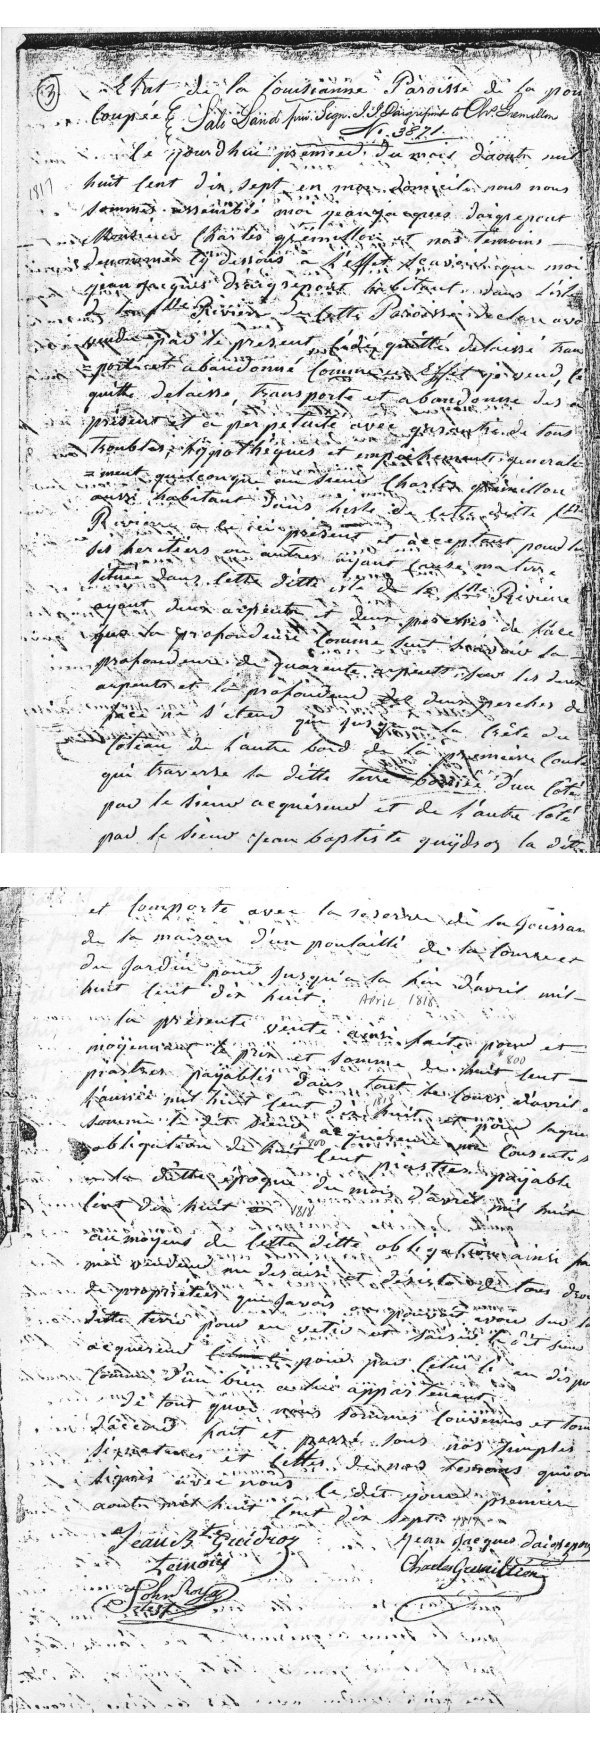 3
Etat de la Louisianne Paroisse de la poin
Coupée Sale Land priv. Sign. J. J. Daigrepont to Chs. Gremillon
No. 3871
Ce jourdhui premier du mois d'aoûst mil
1817
huit Cent dix sept en mon domicile nous nous
sommes assemblé moi jean jacques daigrepont
Monsieur Charles grémillon et nos témoins
denommée Cy dessous à l'effet sçavoir que moi
jean Jacques daigrepont habitant dans l'isle
de la fsse Riviere de Cette Paroisse declare avoi
vendu par le present Cédé quitté delaissé trans
=porté et abandonné Comme en Effet je vend, Ce
quitte delaisse, transporte et abandonne des à
présent et a perpetuité avec garantie de tous
troubles, hÿpothéques et empêchements generale
=ment quelconque au Sieur Charles grémillon
aussi habitant dans l'isle de Cette ditte fsse
Riviere a Ce présent et acceptant pour lui
ses heritiers ou autres ayant Cause ma terre
située dans Cette ditte isle de la fsse Riviere
ayant deux arpents et deux perches de face
que la profondeur Comme suit scavoir la
profondeur de quarente arpents sur les deux
arpents et la profondeur des deux perches de
face ne s'étend que jusqu'a la Crête du
Coteau de l'autre bord de la premiere Coul
qui traverse la ditte terre bornée d'un Côté
par le Sieur acquéreur et de l'autre Côté
par le Sieur jean baptiste guÿdroz la ditte
et Comporte avec la reserve de la jouissan
de la maison d'un poulaillé de la Courre et
du Jardin pour jusqu'a la fin d'avril mil
huit Cent dix huit. APRIL 1818
la présente vente ainsi faite pour et
moÿennant le prix et somme de huit Cent
$800
piastres payables dans tout le Cours d'avril
l'année mil huit Cent dix huit et pour laque
1818
somme le dit Sieur acquéreur me Consent
$800
obligation de huit Cent piastres payable
a la ditte époque du mois d'avril mil huit
Cent dix huit 1818
au moyens de Cette ditte obligation ainsi
moi vendeur me desaisi et désiste de tous dro
de proprietées que javois ou pouvoit avoir sur la
ditte terre pour en vetir et saisir le dit sieur
acquéreur pour par Celui Ci en dispo
Comme d'un bien a lui appartenant
de tout quoi nous sommes Convenus et tom
d'accord fait et passé sous nos simples
signatures et Celles de nos temoins qui on
signés avec nous le dit jour premier
aoûst mil huit Cent dix sept 1817
Jean Bte Guidroz
temoin
Jean Jacques daigrepon
Charles Gremillion
John
test